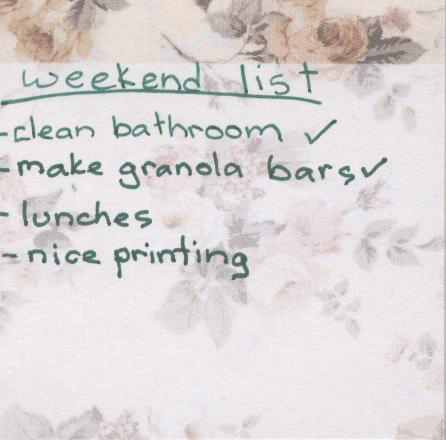 weekend list
-clean bathroom ✓
-make granola bars✓
- lunches
- nice printing